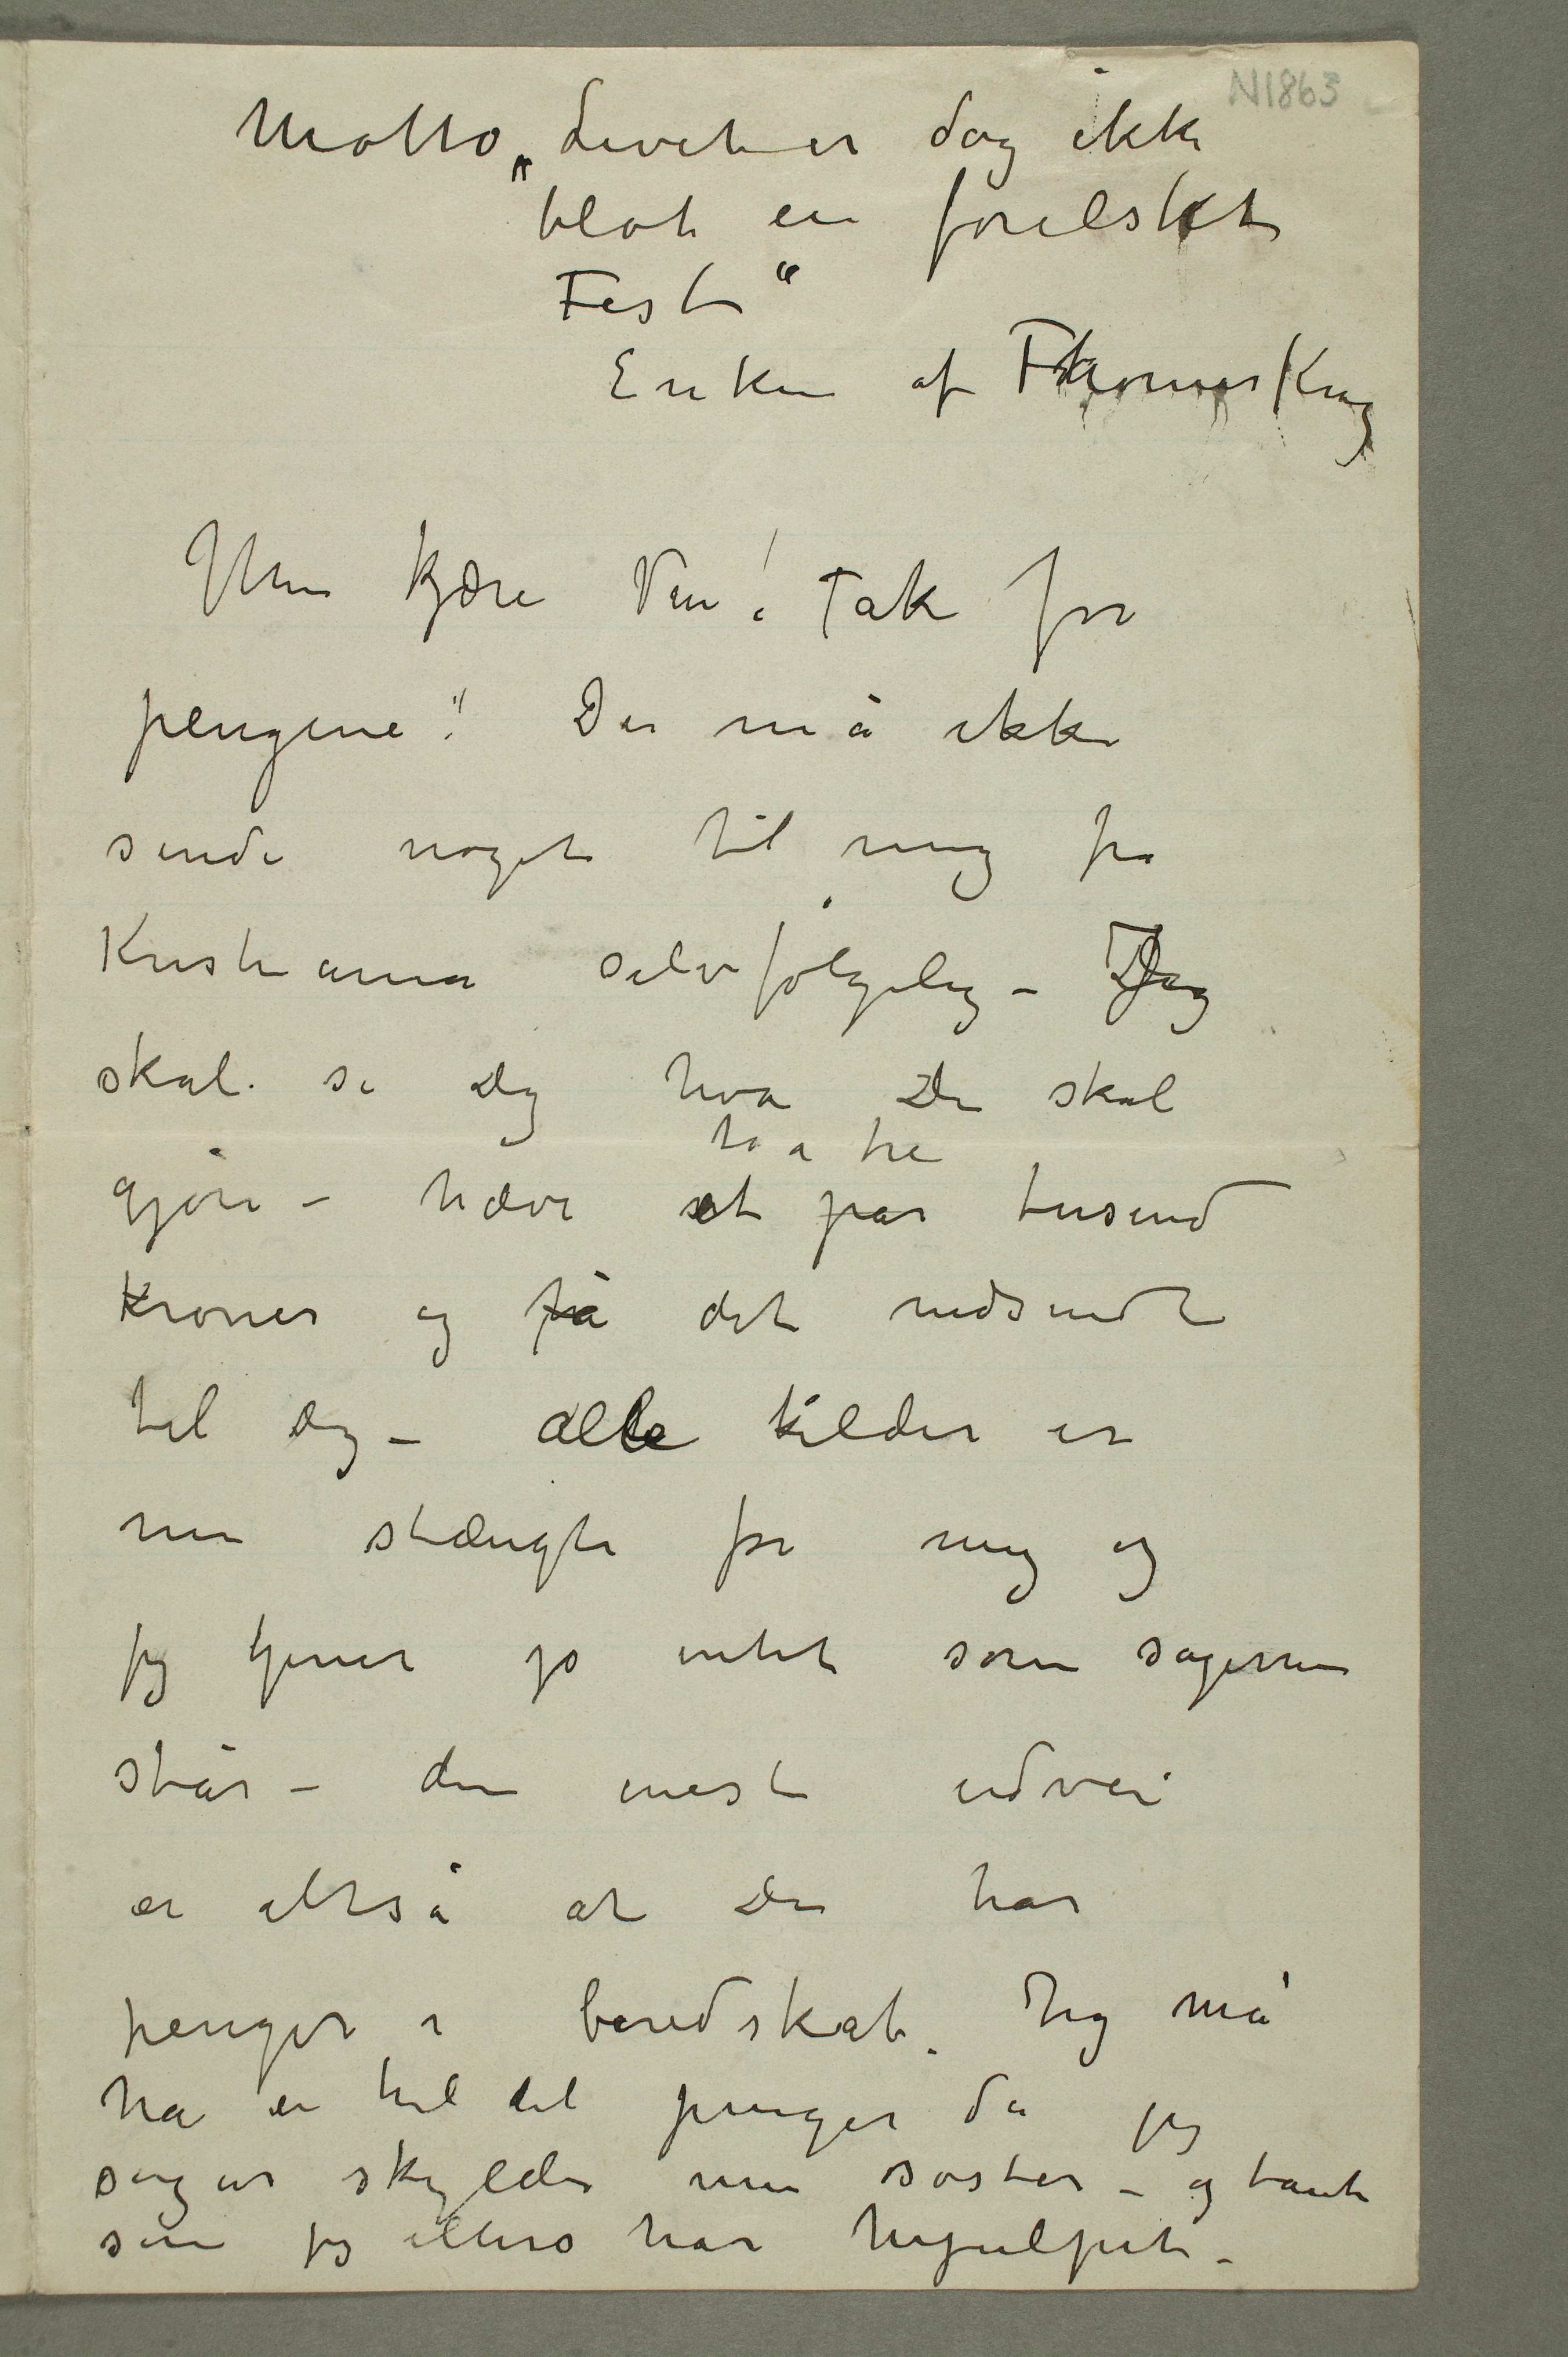 N1863
Motto „Livet er dog ikke
blot en forelsket
Fest“
Enken af Thomas Krag
Min kjære Ven! Tak for
pengene! Du må ikke
sende noget til mig fra
Kristiania selvfølgelig – Jeg
skal si dig hva Du skal
to a tre
gjøre – hæve et par tusend
kroner og få det nedsendt
til dig – alle kilder er
nu stængte for mig og
jeg tjener jo intet som sagerne
står – den eneste udvei
er altså at Du har
penger i beredskab. Jeg må
ha en hel del penger da jeg
sogar skylder min søster – og tante
som jeg ellers har hjulpet –